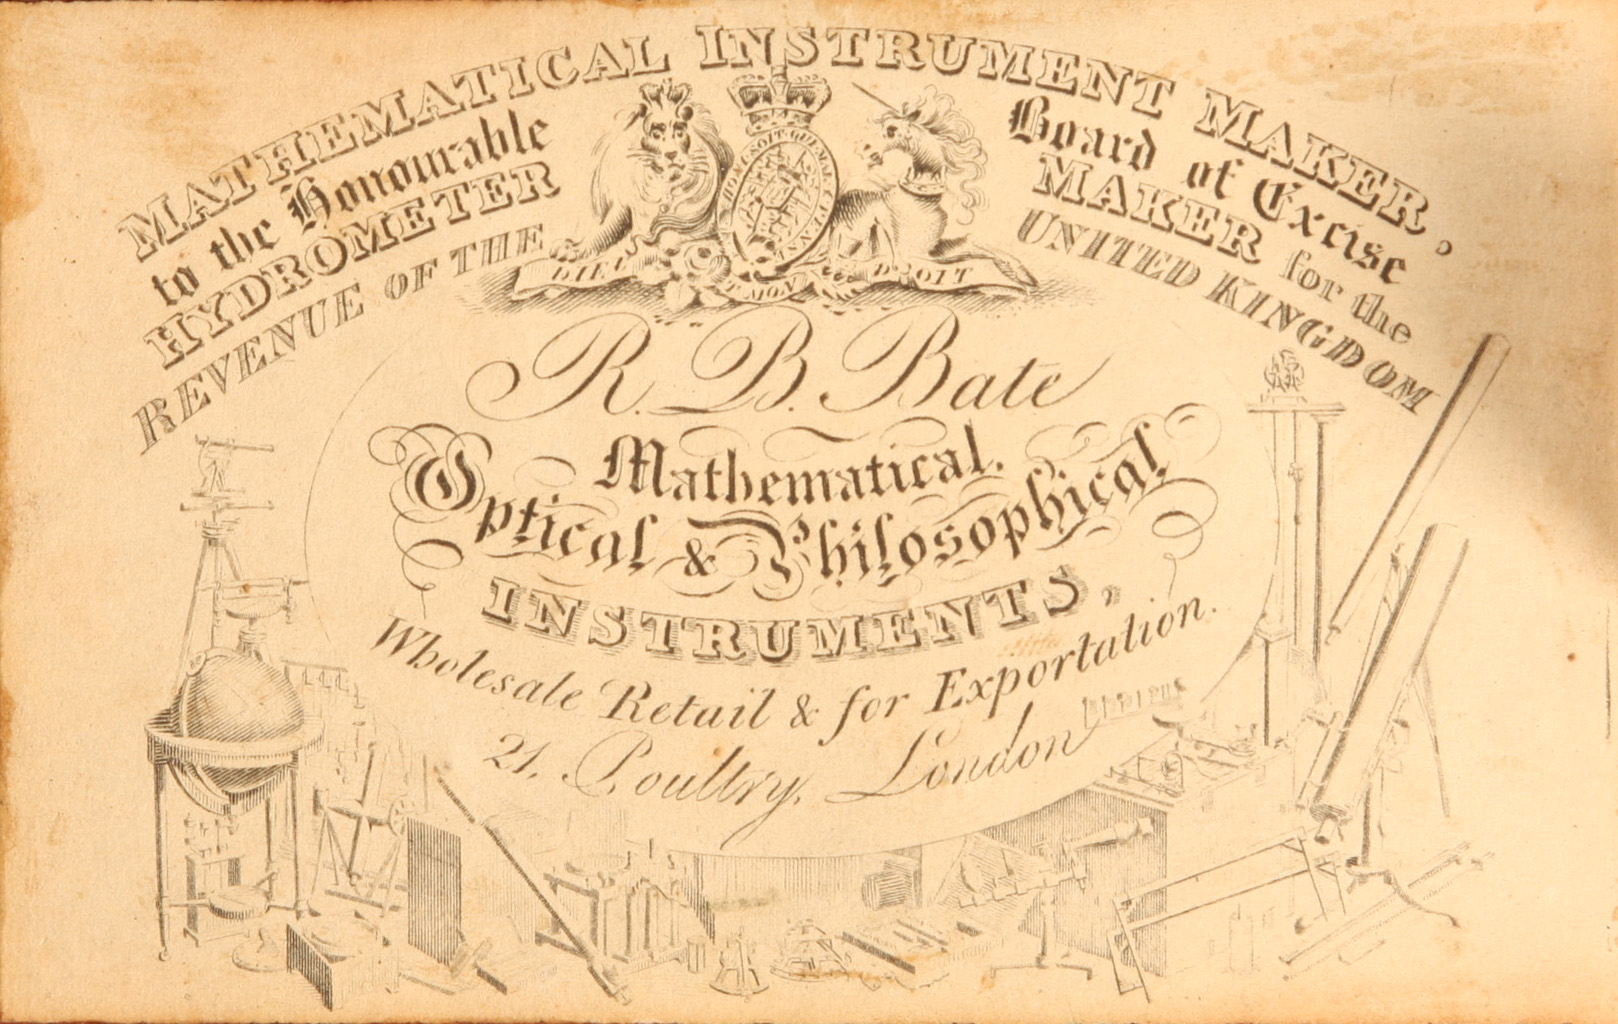 MATHEMATICAL INSTRUMENT MAKER,
to the Honourable Board of Excise
HYDROMETER MAKER for the
REVENUE OF THE UNITED KINGDOM
DIEU ET MON DROIT
R. B. Bate
Mathematical.
Optical & Philosophical
INSTRUMENTS,
Wholesale Retail & for Exportation.
21, Poultry, London